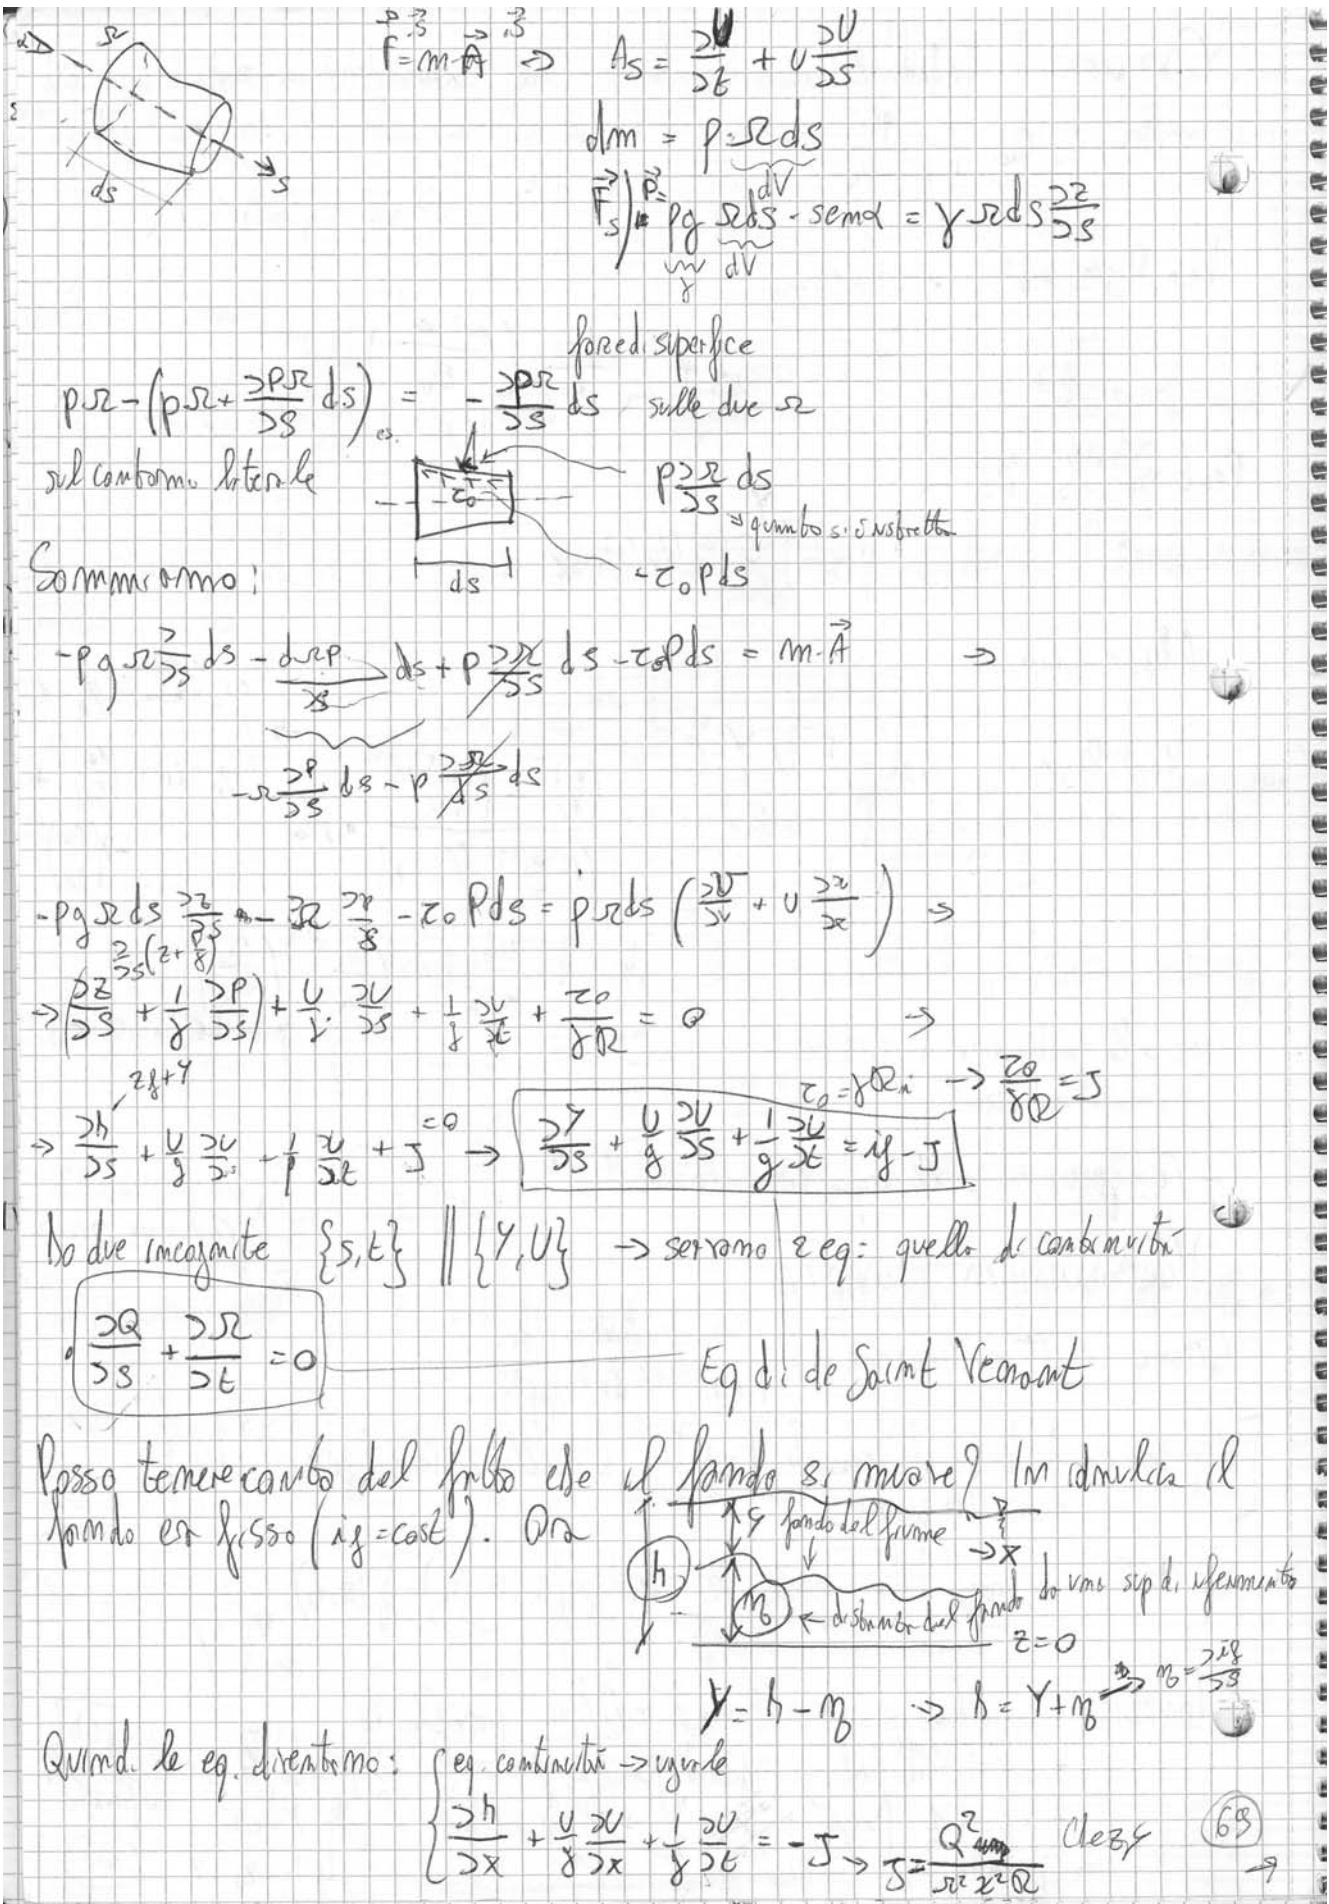 F = m·A ⇒ A_S = ∂U/∂t + U ∂U/∂S
dm = ρ·Ω ds
dV
F_S) = ρg Ω ds · sen α = γ Ω ds ∂z/∂s
γ dV
Ω
ds
s
forze di superfice
pΩ - (pΩ + ∂PΩ/∂S ds) = - ∂PΩ/∂S ds sulle due Ω
sul contorno laterale
τ₀
p ∂Ω/∂S ds
→ quanto si è ristretto
ds
-τ₀ P ds
Sommiamo:
-ρgΩ ∂/∂s ds - dΩp/∂s ds + p ∂Ω/∂S ds - τ₀ P ds = m·A ⇒
-Ω ∂P/∂S ds - p ∂Ω/ds ds
-ρgΩ ds ∂z/∂s - ∂Ω ∂p/∂s - τ₀ P ds = ρΩ ds (∂U/∂ + U ∂/∂) ⇒
∂/∂s (z + p/γ)
→ (∂Z/∂S + 1/γ ∂P/∂S) + U/g ∂U/∂S + 1/g ∂U/∂t + τ₀/γR = 0 →
zf + Y
τ₀ = γRi → τ₀/γR = J
→ ∂h/∂s + U/g ∂U/∂s + 1/g ∂U/∂t + J = 0 → ∂Y/∂S + U/g ∂U/∂S + 1/g ∂U/∂t = if - J
Do due incognite {s,t} || {Y,U} → servono 2 eq: quella di continuità
∂Q/∂s + ∂Ω/∂t = 0
Eq di de Saint Venant
Posso tenere conto del fatto che il fondo si muove? In idraulica il
fondo era fisso (if = cost). Ora
Y
fondo del fiume
→ x
h
η
← distanza del fondo da una sup di riferimento
z = 0
Y = h - η → h = Y + η → η = ∂if/∂s
Quindi le eq. diventano: { eq. continuità → uguale
∂h/∂x + U/g ∂U/∂x + 1/g ∂U/∂t = -J → J = Q²/Ω²χ²R Chezy
69
→